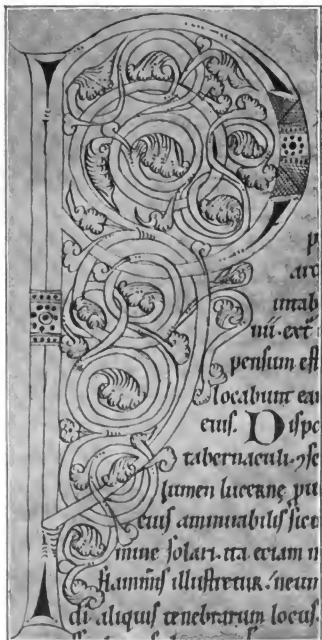 p
arc
umtab
nu. ext
pensum est
locabunt ean
eius. Dispo
tabernaculi. 7 se
lumen lucerne pu
cuius ammirabilis sice
mine solari. ita eciam n
flaminis illustretur. neuin
di aliquis tenebrarum locus.